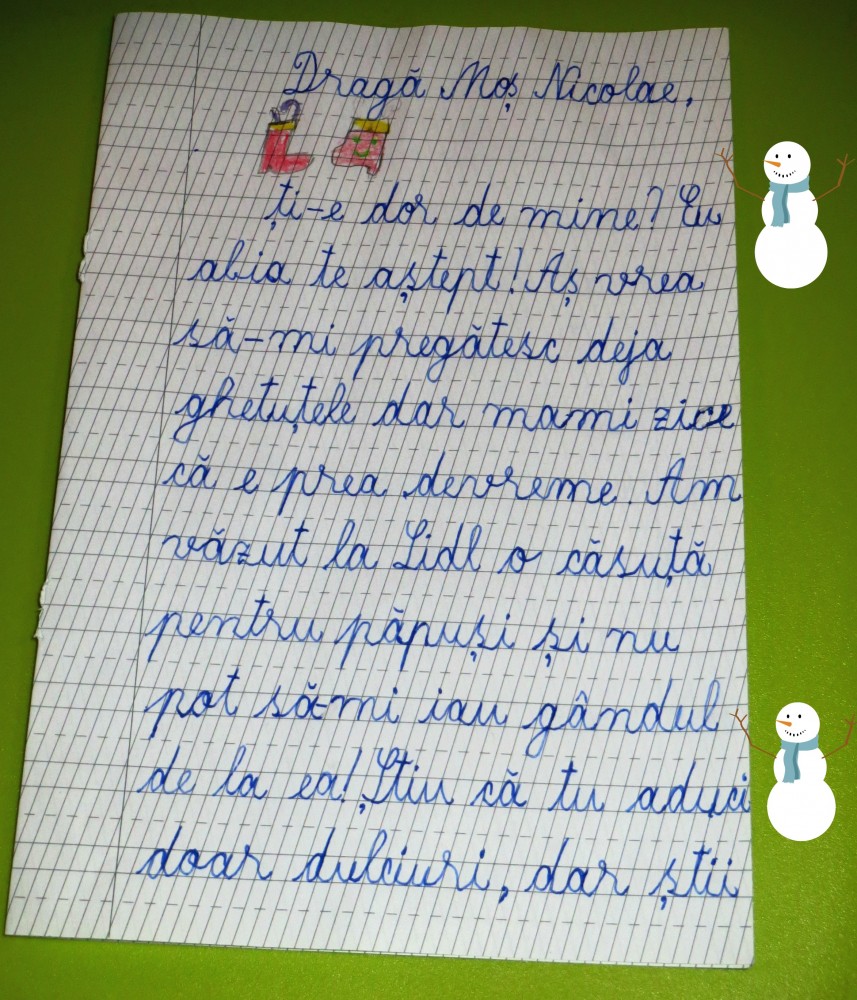 Dragă Moș Nicolae,
ți-e dor de mine? Eu
abia te aștept! Aș vrea
să-mi pregătesc deja
ghetuțele dar mami zice
că e prea devreme. Am
văzut la Lidl o căsuță
pentru păpuși și nu
pot să-mi iau gândul
de la ea! Știu că tu aduci
doar dulciuri, dar știi